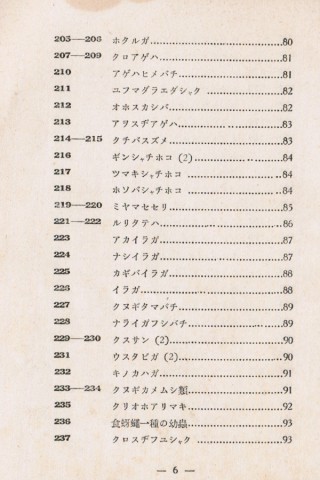 205—206 ホタルガ 80
207—209 クロアゲハ 81
210 アゲハヒメバチ 81
211 ユフマグラエダシャク 82
212 オホスカシバ 82
213 アリスヂアゲハ 83
214—215 クチバスズメ 83
216 ギンシャチホコ (2) 84
217 ツマキシャチホコ 84
218 ホソバシャチホコ 84
219—220 ミヤマセセリ 85
221—222 ルリタテハ 86
223 アカイラガ 87
224 ナシイラガ 87
225 カギバイラガ 88
226 イラガ 88
227 クヌギタマバチ 89
228 ナライガフシバチ 89
229—230 クスサン (2) 90
231 ウスタビガ (2) 90
232 キノカハガ 91
233—234 クヌギカメムシ類 91
235 クリオホアリマキ 92
236 食蚜蠅一種の幼蟲 93
237 クロスヂフユシャク 93
— 6 —